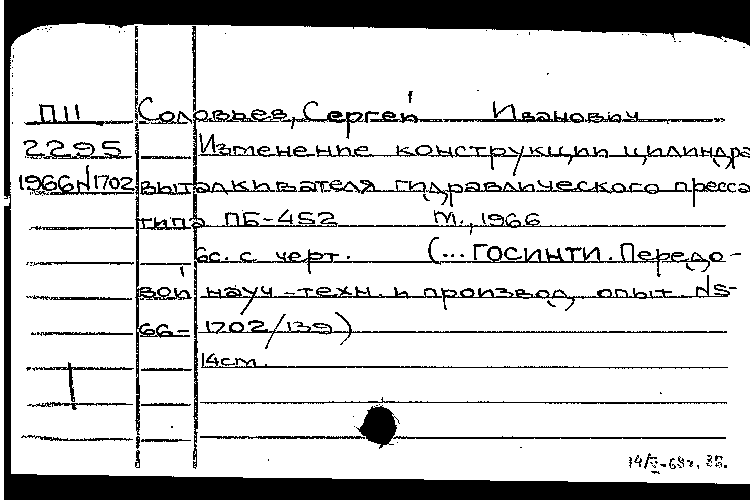 П11 Соловьев, Сергей Иванович
2295 Изменение конструкции цилиндра
1966 N1702 выталкивателя гидравлического пресса
типа ПБ-452 М., 1966
6с. с черт. (... ГОСИНТИ. Передо-
вой науч-техн. и производ. опыт N5-
66-1702/139)
14см.